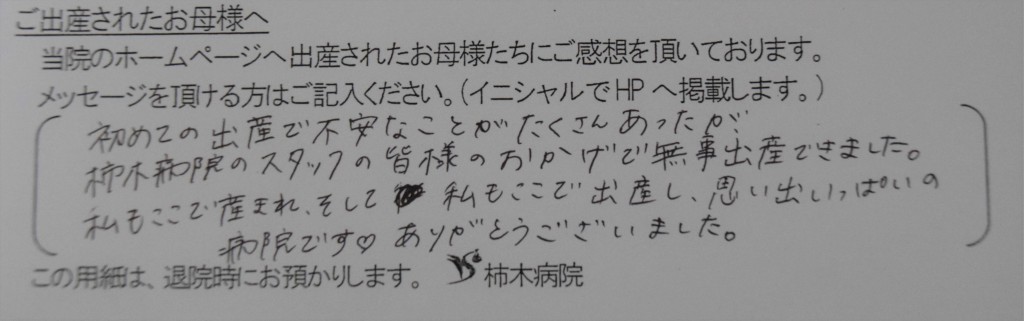 ご出産されたお母様へ
当院のホームページへ出産されたお母様たちにご感想を頂いております。
メッセージを頂ける方はご記入ください。（イニシャルでHPへ掲載します。）
初めての出産で不安なことがたくさんあったが
柿木病院のスタッフの皆様のおかげで無事出産できました。
私もここで産まれ、そして私もここで出産し、思い出いっぱいの
病院です♡ ありがとうございました。
この用紙は、退院時にお預かりします。 柿木病院